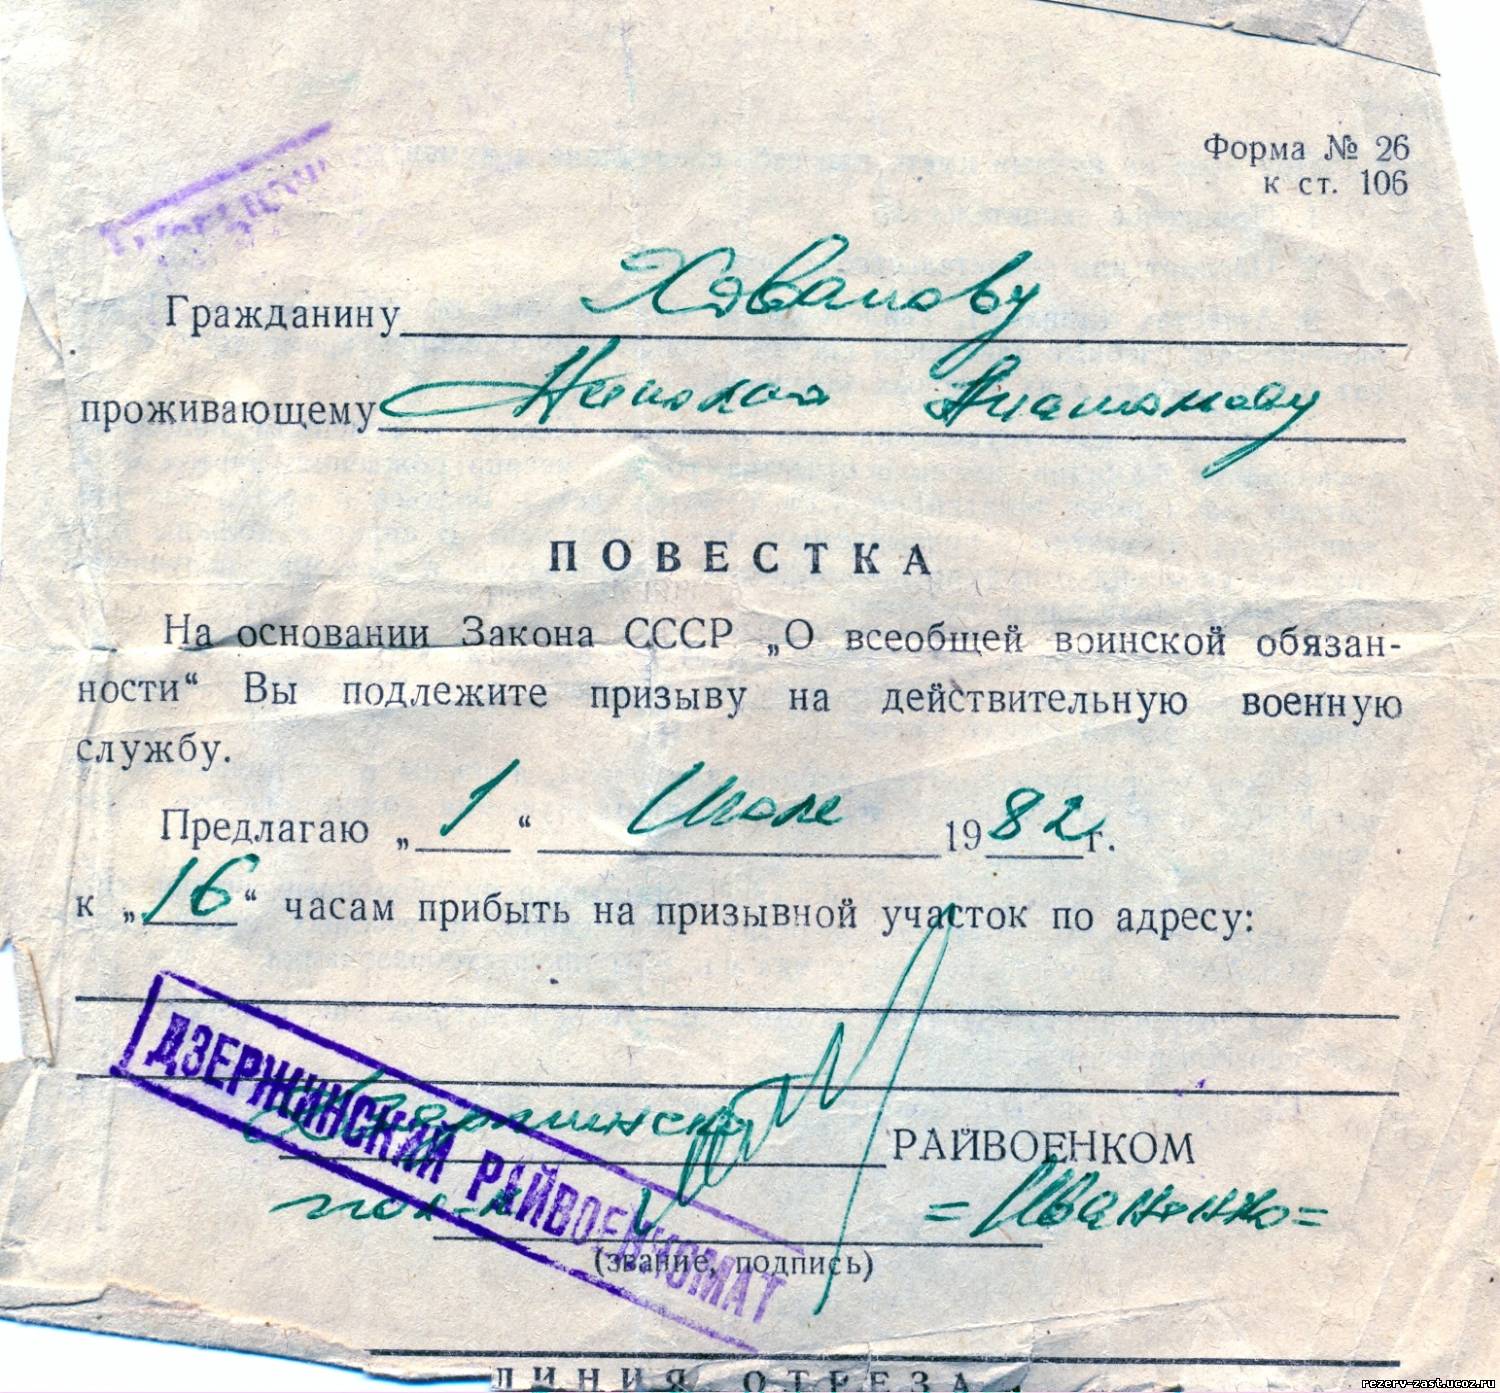 Форма № 26
к ст. 106
Гражданину Хованову
проживающему Николаю Анатольеву
ПОВЕСТКА
На основании Закона СССР „О всеобщей воинской обязан-
ности“ Вы подлежите призыву на действительную военную
службу.
Предлагаю „1“ Июля 1982г.
к „16“ часам прибыть на призывной участок по адресу:
ДЗЕРЖИНСКИЙ РАЙВОЕНКОМАТ
Дзержинский РАЙВОЕНКОМ
=Иваненко=
(звание, подпись)
ЛИНИЯ ОТРЕЗА
rezerv-zast.ucoz.ru